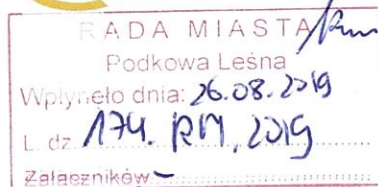 RADA MIASTA
Podkowa Leśna
Wpłynęło dnia: 26.08.2019
L. dz. 174. RM. 2019
Załączników -